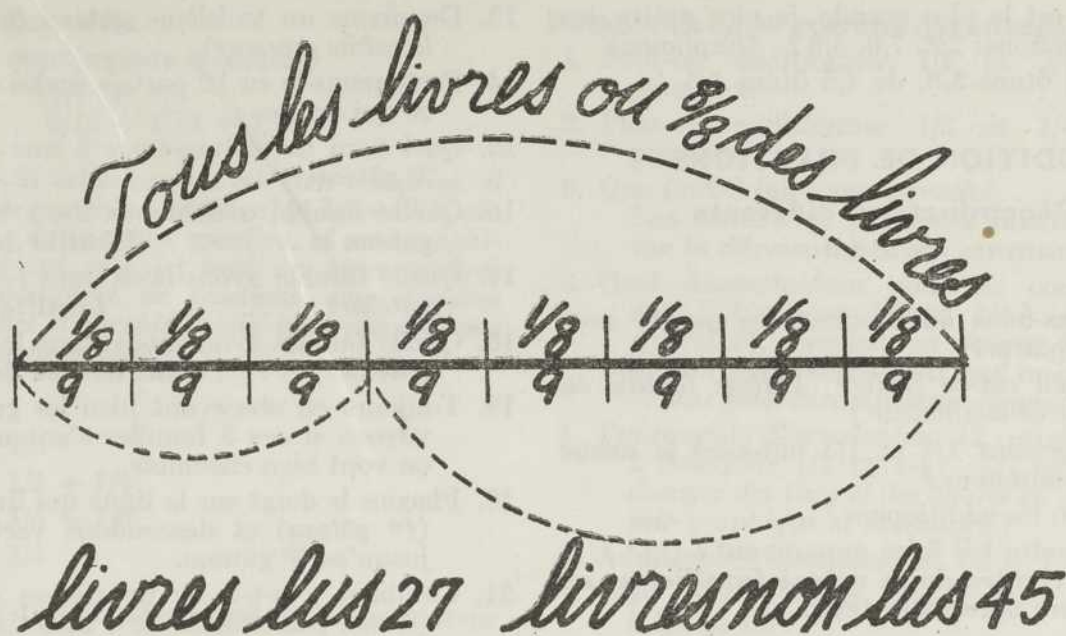 Tous les livres ou 8/8 des livres
1/8 1/8 1/8 1/8 1/8 1/8 1/8 1/8
9 9 9 9 9 9 9 9
livres lus 27 livres non lus 45